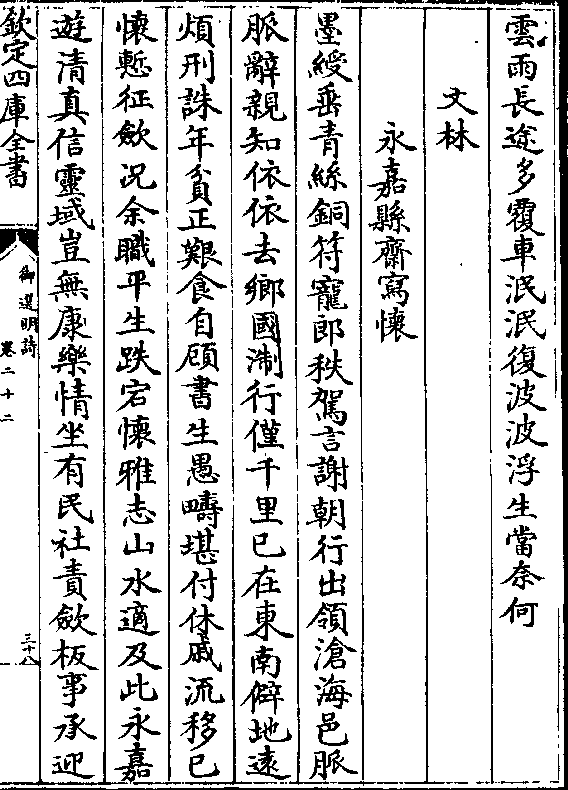 雲雨長途多覆車泯泯復波波浮生當奈何
文林
永嘉縣齋寫懷
墨綬垂青絲銅符寵郎秩駕言謝朝行出領滄海邑脈
脈辭親知依依去鄉國淛行僅千里已在東南僻地遠
煩刑誅年貧正艱食自顧書生愚疇堪付休戚流移已
懷慙征斂况余職平生跌宕懷雅志山水適及此永嘉
遊清真信靈域豈無康樂情坐有民社責斂板事承迎
欽定四庫全書
御選明詩
卷二十二
三十八